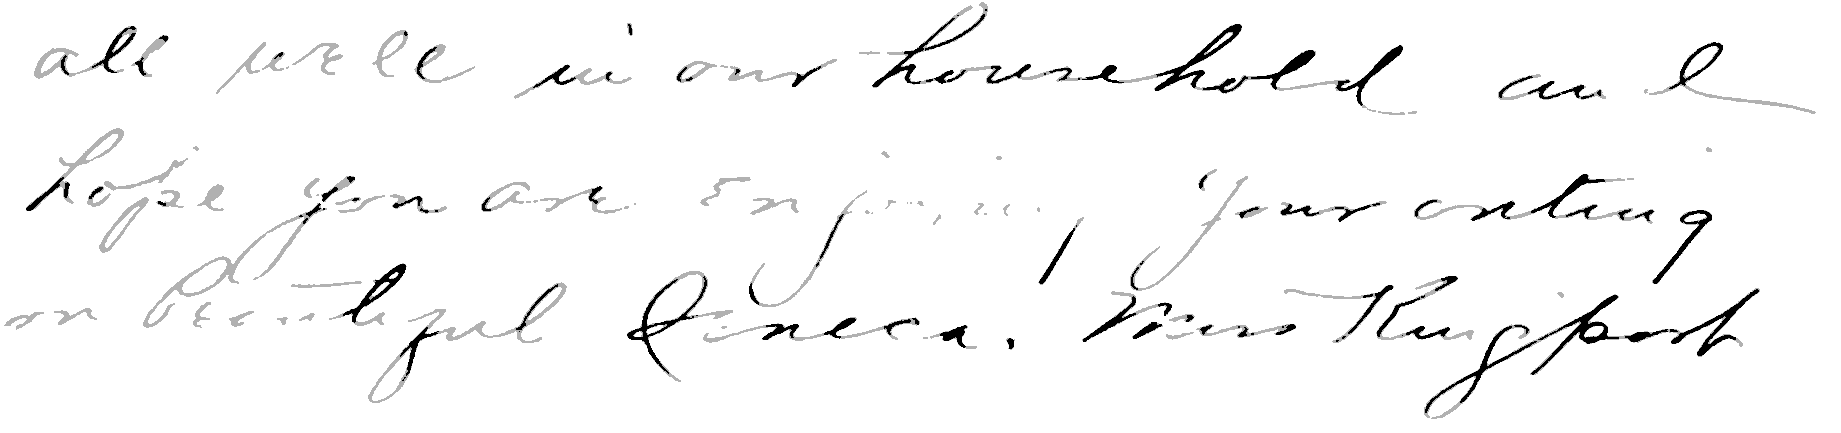 all well in our household and
hope you are Enjoying your outing
on beautiful Seneca. Miss Kingport